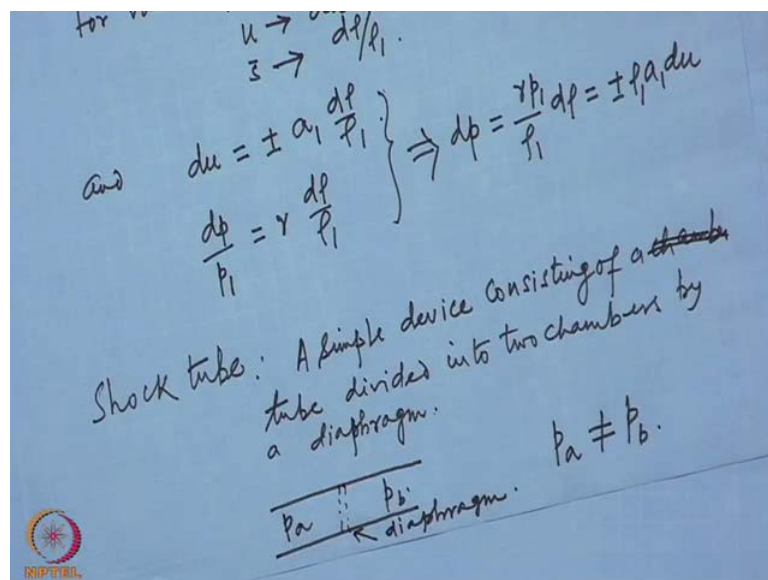 for
u →
s̄ → dρ/ρ₁.
and du = ± a₁ dρ/ρ₁.
dp/p₁ = γ dρ/ρ₁ } ⇒ dp = γp₁/ρ₁ dρ = ± ρ₁a₁du
Shock tube: A simple device consisting of a
tube divided into two chambers by
a diaphragm.
pa pb. pa ≠ pb.
diaphragm.
NPTEL